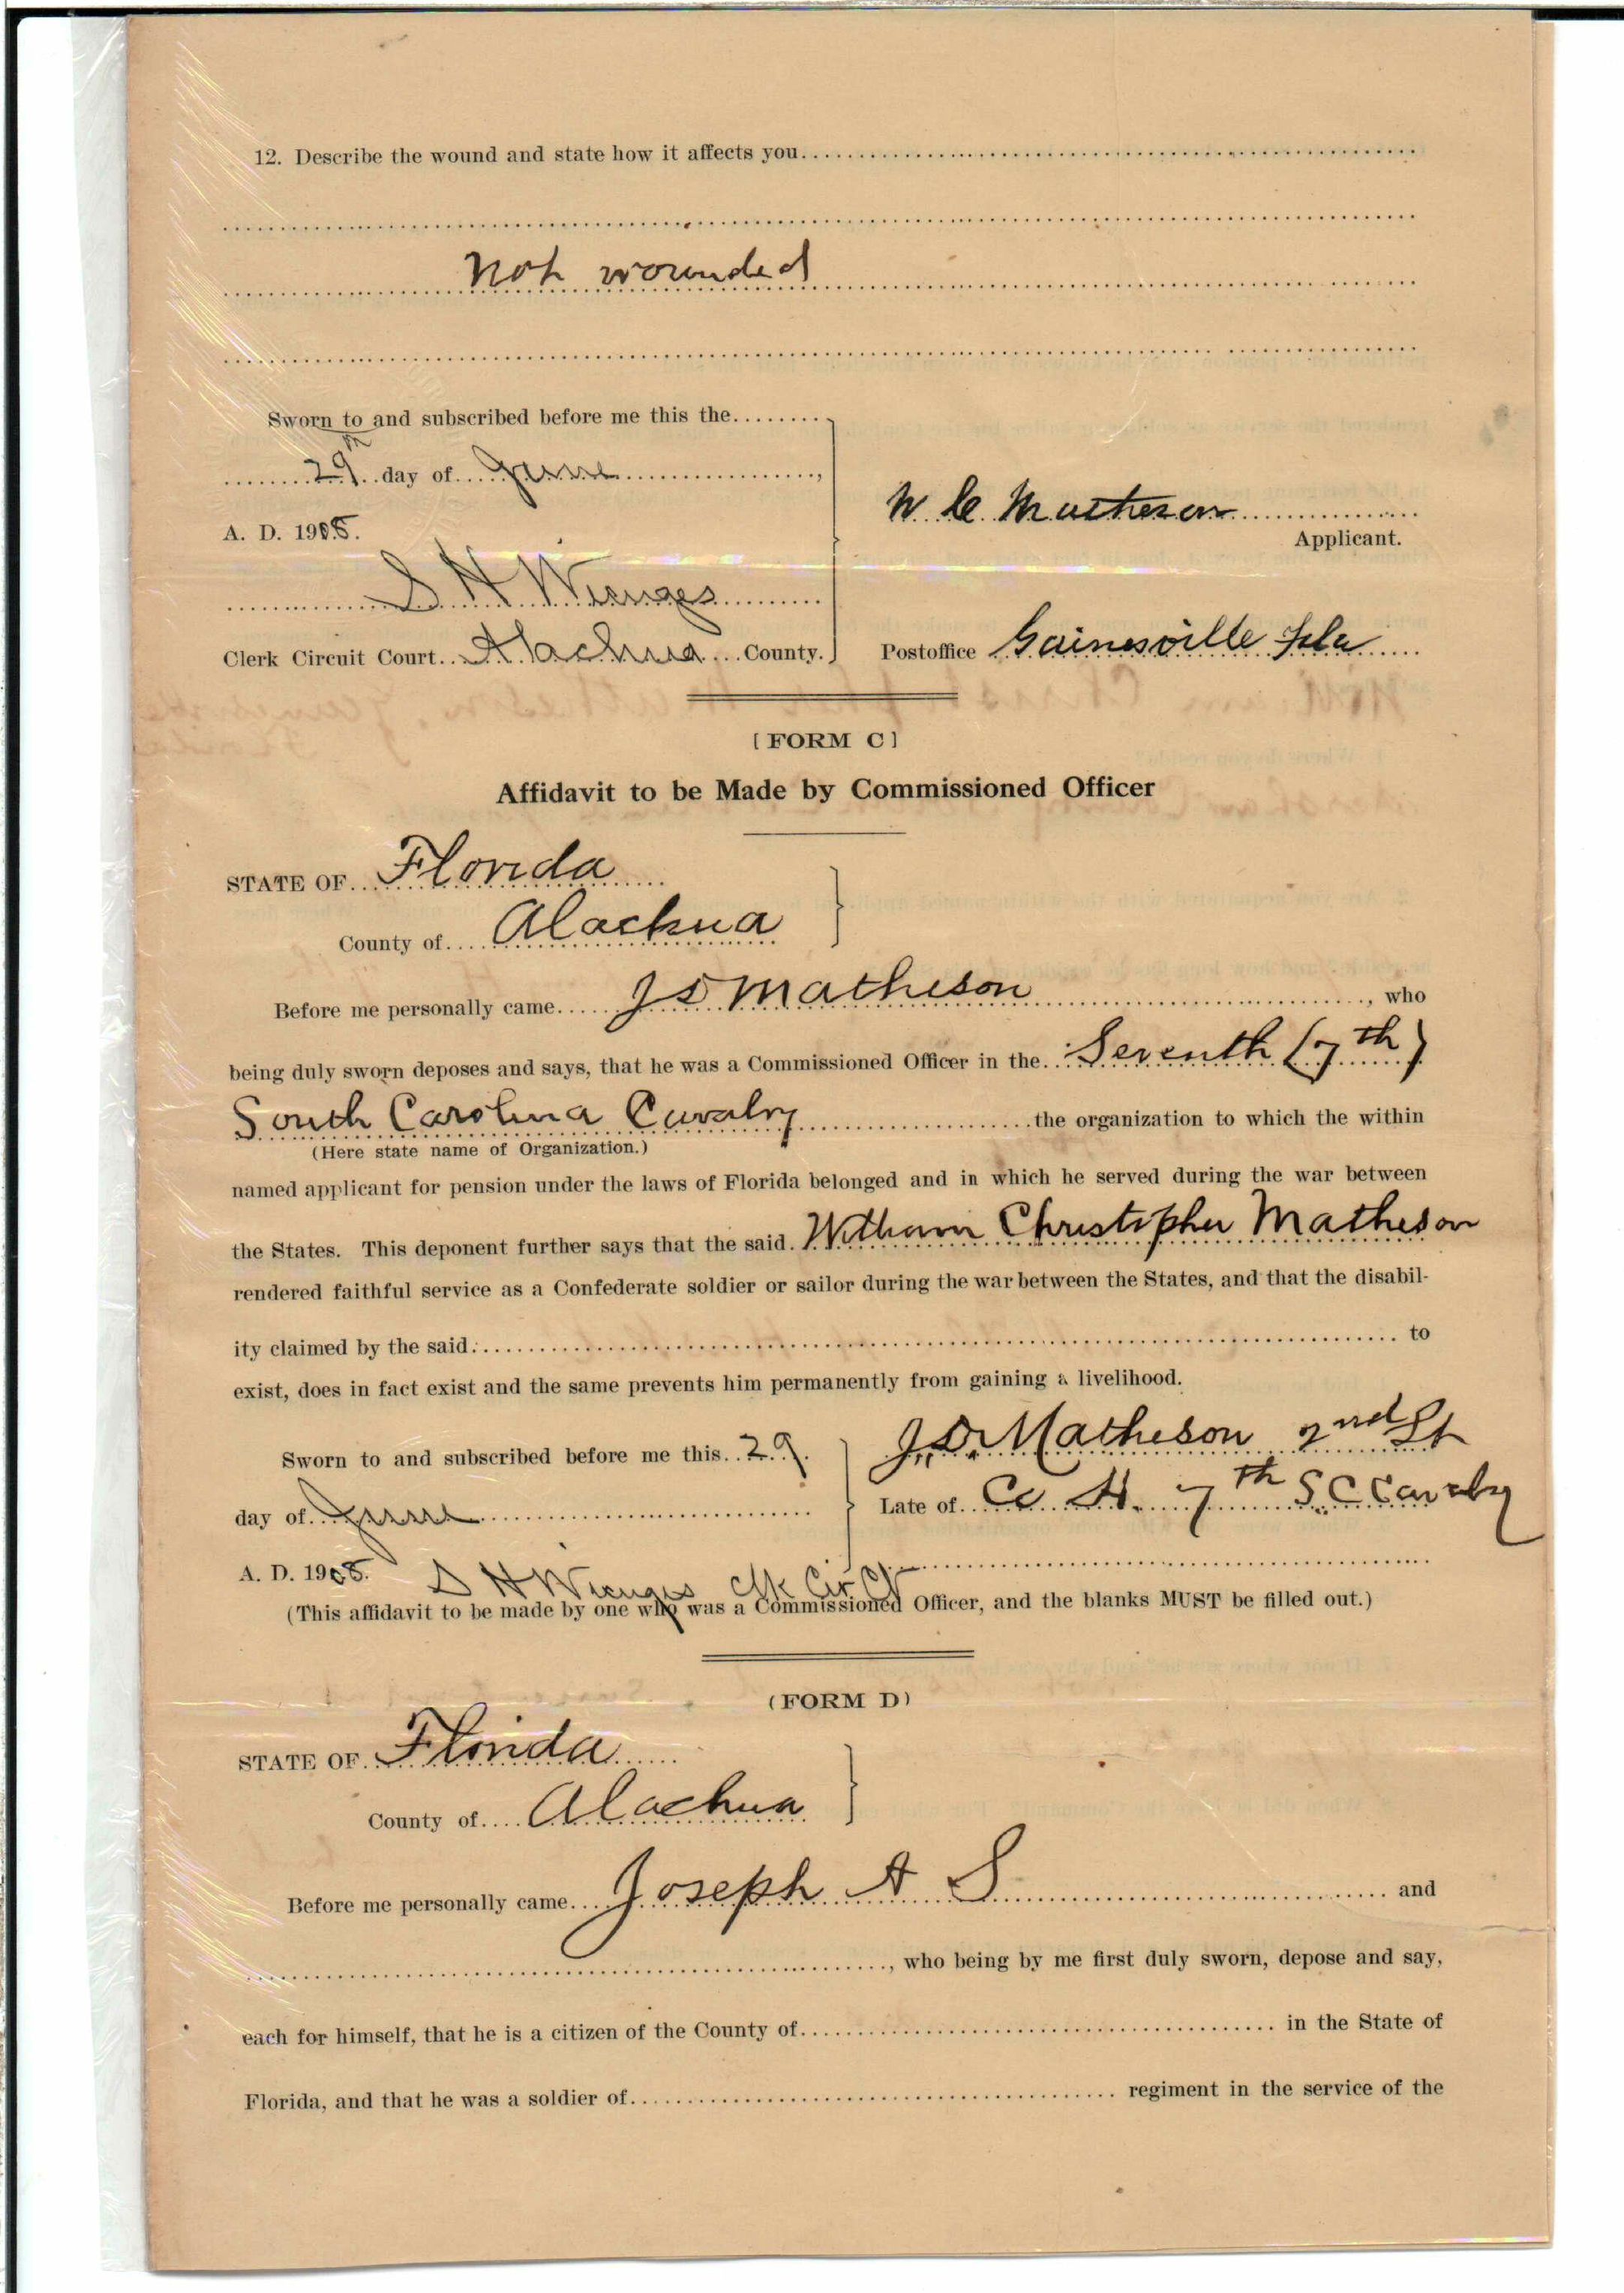 12. Describe the wound and state how it affects you
not wounded
Sworn to and subscribed before me this the
29th day of June
A. D. 1908.
W C Matheson
Applicant.
S H Wienges
Clerk Circuit Court Alachua County.
Postoffice Gainesville Fla
[FORM C]
Affidavit to be Made by Commissioned Officer
STATE OF Florida
County of Alachua
Before me personally came J D Matheson, who
being duly sworn deposes and says, that he was a Commissioned Officer in the Seventh (7th)
South Carolina Cavalry the organization to which the within
(Here state name of Organization.)
named applicant for pension under the laws of Florida belonged and in which he served during the war between
the States. This deponent further says that the said William Christopher Matheson
rendered faithful service as a Confederate soldier or sailor during the war between the States, and that the disabil-
ity claimed by the said to
exist, does in fact exist and the same prevents him permanently from gaining a livelihood.
Sworn to and subscribed before me this 29
J. D. Matheson 2nd Lt
day of June
Late of Co H. 7th S. C Cavalry
A. D. 1908. S H Wienges Clk Cir Ct
(This affidavit to be made by one who was a Commissioned Officer, and the blanks MUST be filled out.)
(FORM D)
STATE OF Florida
County of Alachua
Before me personally came Joseph A S and
, who being by me first duly sworn, depose and say,
each for himself, that he is a citizen of the County of in the State of
Florida, and that he was a soldier of regiment in the service of the